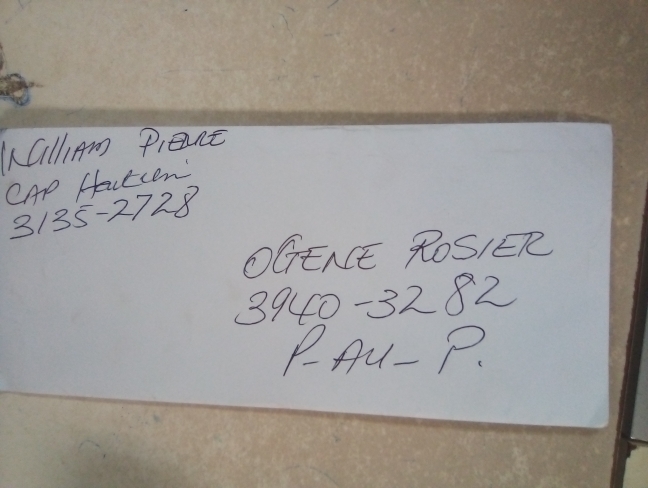 William PIERRE
CAP Haitien
3135-2728
OGENE ROSIER
3940-3282
P-AU-P.